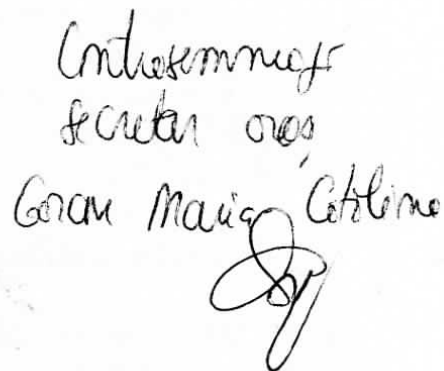 Contrasemnează
secretar oraș,
Goran Maria Cătălina